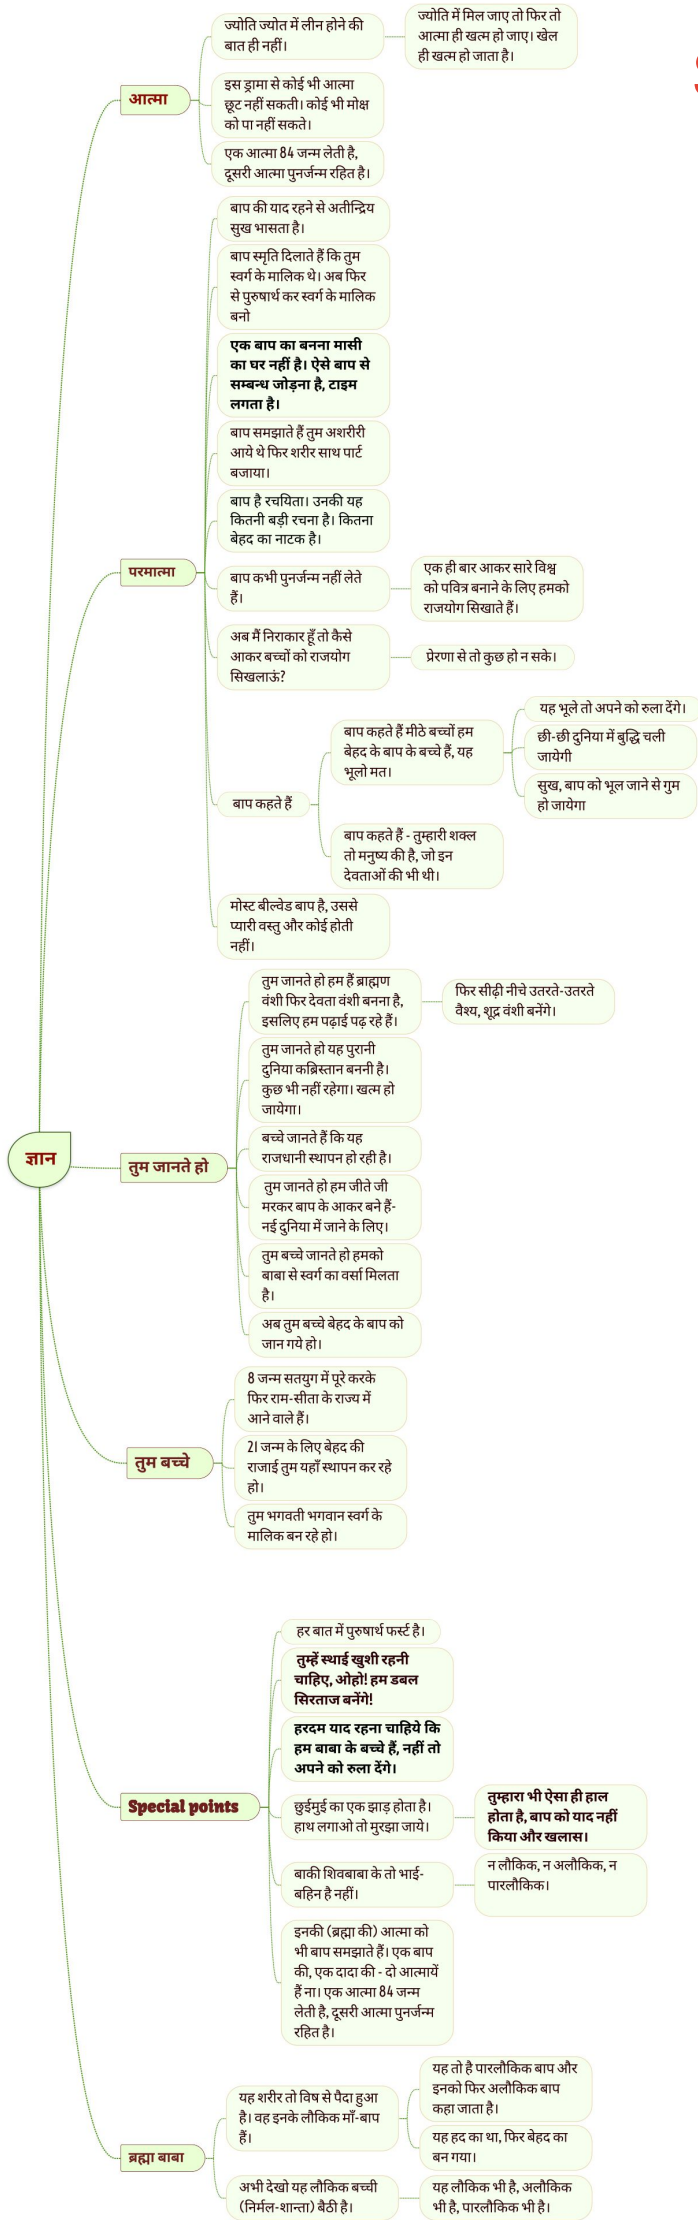 ज्योति ज्योत में लीन होने की
बात ही नहीं।
ज्योति में मिल जाए तो फिर तो
आत्मा ही खत्म हो जाए। खेल
ही खत्म हो जाता है।
आत्मा
इस ड्रामा से कोई भी आत्मा
छूट नहीं सकती। कोई भी मोक्ष
को पा नहीं सकते।
एक आत्मा 84 जन्म लेती है,
दूसरी आत्मा पुनर्जन्म रहित है।
बाप की याद रहने से अतीन्द्रिय
सुख भासता है।
बाप स्मृति दिलाते हैं कि तुम
स्वर्ग के मालिक थे। अब फिर
से पुरुषार्थ कर स्वर्ग के मालिक
बनो
एक बाप का बनना मासी
का घर नहीं है। ऐसे बाप से
सम्बन्ध जोड़ना है, टाइम
लगता है।
बाप समझाते हैं तुम अशरीरी
आये थे फिर शरीर साथ पार्ट
बजाया।
बाप है रचयिता। उनकी यह
कितनी बड़ी रचना है। कितना
बेहद का नाटक है।
परमात्मा
बाप कभी पुनर्जन्म नहीं लेते
हैं।
एक ही बार आकर सारे विश्व
को पवित्र बनाने के लिए हमको
राजयोग सिखाते हैं।
अब मैं निराकार हूँ तो कैसे
आकर बच्चों को राजयोग
सिखलाऊं?
प्रेरणा से तो कुछ हो न सके।
बाप कहते हैं
बाप कहते हैं मीठे बच्चों हम
बेहद के बाप के बच्चे हैं, यह
भूलो मत।
यह भूले तो अपने को रुला देंगे।
छी-छी दुनिया में बुद्धि चली
जायेगी
सुख, बाप को भूल जाने से गुम
हो जायेगा
बाप कहते हैं - तुम्हारी शक्ल
तो मनुष्य की है, जो इन
देवताओं की भी थी।
मोस्ट बील्वेड बाप है, उससे
प्यारी वस्तु और कोई होती
नहीं।
तुम जानते हो हम हैं ब्राह्मण
वंशी फिर देवता वंशी बनना है,
इसलिए हम पढ़ाई पढ़ रहे हैं।
फिर सीढ़ी नीचे उतरते-उतरते
वैश्य, शूद्र वंशी बनेंगे।
तुम जानते हो यह पुरानी
दुनिया कब्रिस्तान बननी है।
कुछ भी नहीं रहेगा। खत्म हो
जायेगा।
ज्ञान
तुम जानते हो
बच्चे जानते हैं कि यह
राजधानी स्थापन हो रही है।
तुम जानते हो हम जीते जी
मरकर बाप के आकर बने हैं-
नई दुनिया में जाने के लिए।
तुम बच्चे जानते हो हमको
बाबा से स्वर्ग का वर्सा मिलता
है।
अब तुम बच्चे बेहद के बाप को
जान गये हो।
8 जन्म सतयुग में पूरे करके
फिर राम-सीता के राज्य में
आने वाले हैं।
तुम बच्चे
21 जन्म के लिए बेहद की
राजाई तुम यहाँ स्थापन कर रहे
हो।
तुम भगवती भगवान स्वर्ग के
मालिक बन रहे हो।
हर बात में पुरुषार्थ फर्स्ट है।
तुम्हें स्थाई खुशी रहनी
चाहिए, ओहो! हम डबल
सिरताज बनेंगे!
हरदम याद रहना चाहिये कि
हम बाबा के बच्चे हैं, नहीं तो
अपने को रुला देंगे।
Special points
छुईमुई का एक झाड़ होता है।
हाथ लगाओ तो मुरझा जाये।
तुम्हारा भी ऐसा ही हाल
होता है, बाप को याद नहीं
किया और खलास।
बाकी शिवबाबा के तो भाई-
बहिन है नहीं।
न लौकिक, न अलौकिक, न
पारलौकिक।
इनकी (ब्रह्मा की) आत्मा को
भी बाप समझाते हैं। एक बाप
की, एक दादा की - दो आत्मायें
हैं ना। एक आत्मा 84 जन्म
लेती है, दूसरी आत्मा पुनर्जन्म
रहित है।
ब्रह्मा बाबा
यह शरीर तो विष से पैदा हुआ
है। वह इनके लौकिक माँ-बाप
हैं।
यह तो है पारलौकिक बाप और
इनको फिर अलौकिक बाप
कहा जाता है।
यह हद का था, फिर बेहद का
बन गया।
अभी देखो यह लौकिक बच्ची
(निर्मल-शान्ता) बैठी है।
यह लौकिक भी है, अलौकिक
भी है, पारलौकिक भी है।